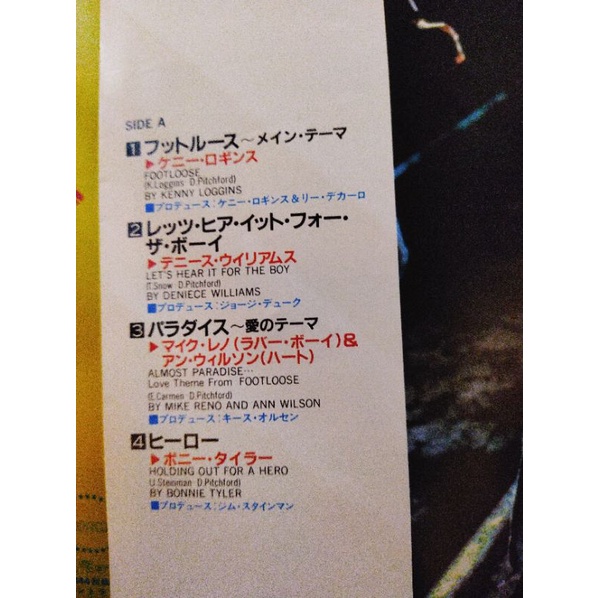 SIDE A
1 フットルース〜メイン・テーマ
▶ケニー・ロギンス
FOOTLOOSE
(K.Loggins D.Pitchford)
BY KENNY LOGGINS
■プロデュース:ケニー・ロギンス&リー・デカーロ
2 レッツ・ヒア・イット・フォー・
ザ・ボーイ
▶デニース・ウィリアムス
LET'S HEAR IT FOR THE BOY
(T.Snow D.Pitchford)
BY DENIECE WILLIAMS
■プロデュース:ジョージ・デューク
3 パラダイス〜愛のテーマ
▶マイク・レノ(ラバー・ボーイ)&
アン・ウィルソン(ハート)
ALMOST PARADISE…
Love Theme From FOOTLOOSE
(E.Carmen D.Pitchford)
BY MIKE RENO AND ANN WILSON
■プロデュース:キース・オルセン
4 ヒーロー
▶ボニー・タイラー
HOLDING OUT FOR A HERO
(J.Steinman D.Pitchford)
BY BONNIE TYLER
■プロデュース:ジム・スタインマン